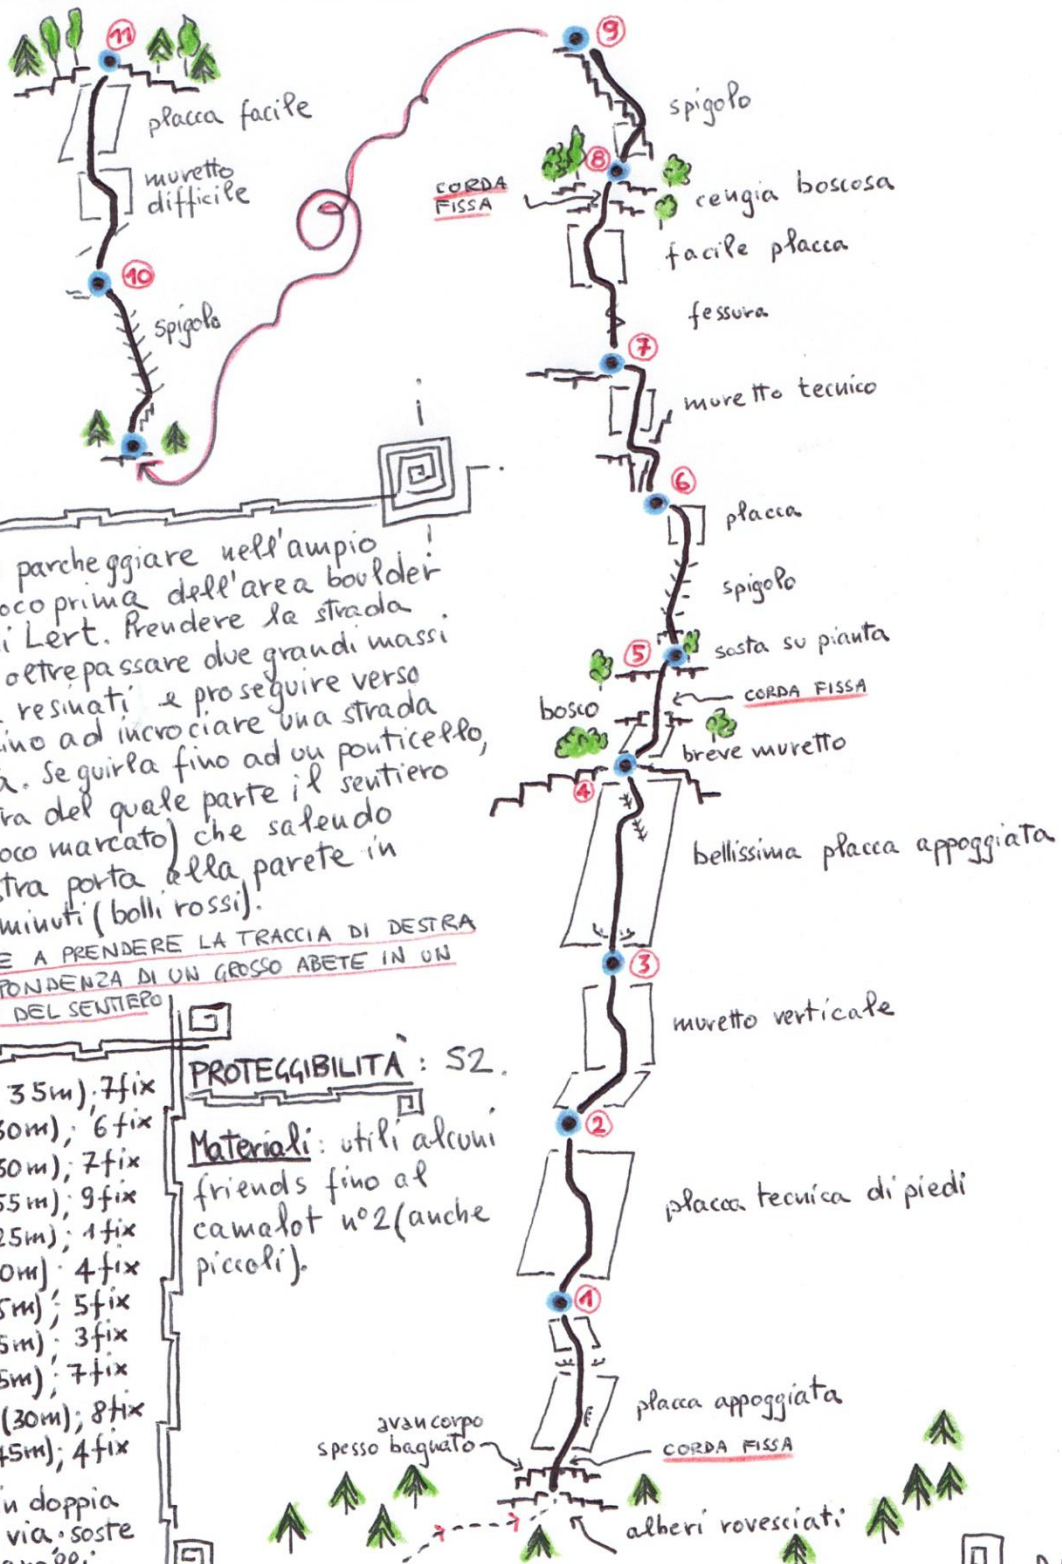 11
placca facile
muretto
difficile
10
spigolo
9
spigolo
8
CORDA
FISSA
cengia boscosa
facile placca
fessura
7
muretto tecnico
6
placca
spigolo
5
sosta su pianta
CORDA FISSA
bosco
breve muretto
4
bellissima placca appoggiata
3
muretto verticale
2
placca tecnica di piedi
1
placca appoggiata
avancorpo
spesso bagnato
CORDA FISSA
alberi rovesciati
parcheggiare nell'ampio
oco prima dell'area boulder
i Lert. Prendere la strada
oltrepassare due grandi massi
resinati e proseguire verso
ino ad incrociare una strada
a. Seguirla fino ad un ponticello,
ra del quale parte il sentiero
oco marcato) che salendo
tra porta alla parete in
minuti (bolli rossi).
E A PRENDERE LA TRACCIA DI DESTRA
PONDENZA DI UN GROSSO ABETE IN UN
DEL SENTIERO
35m); 7fix
30m); 6fix
50m); 7fix
55m); 9fix
25m); 1fix
0m); 4fix
5m); 5fix
5m); 3fix
5m); 7fix
(30m); 8fix
45m); 4fix
in doppia
via. soste
PROTEGGIBILITÀ: S2.
Materiali: utili alcuni
friends fino al
camalot n°2 (anche
piccoli).